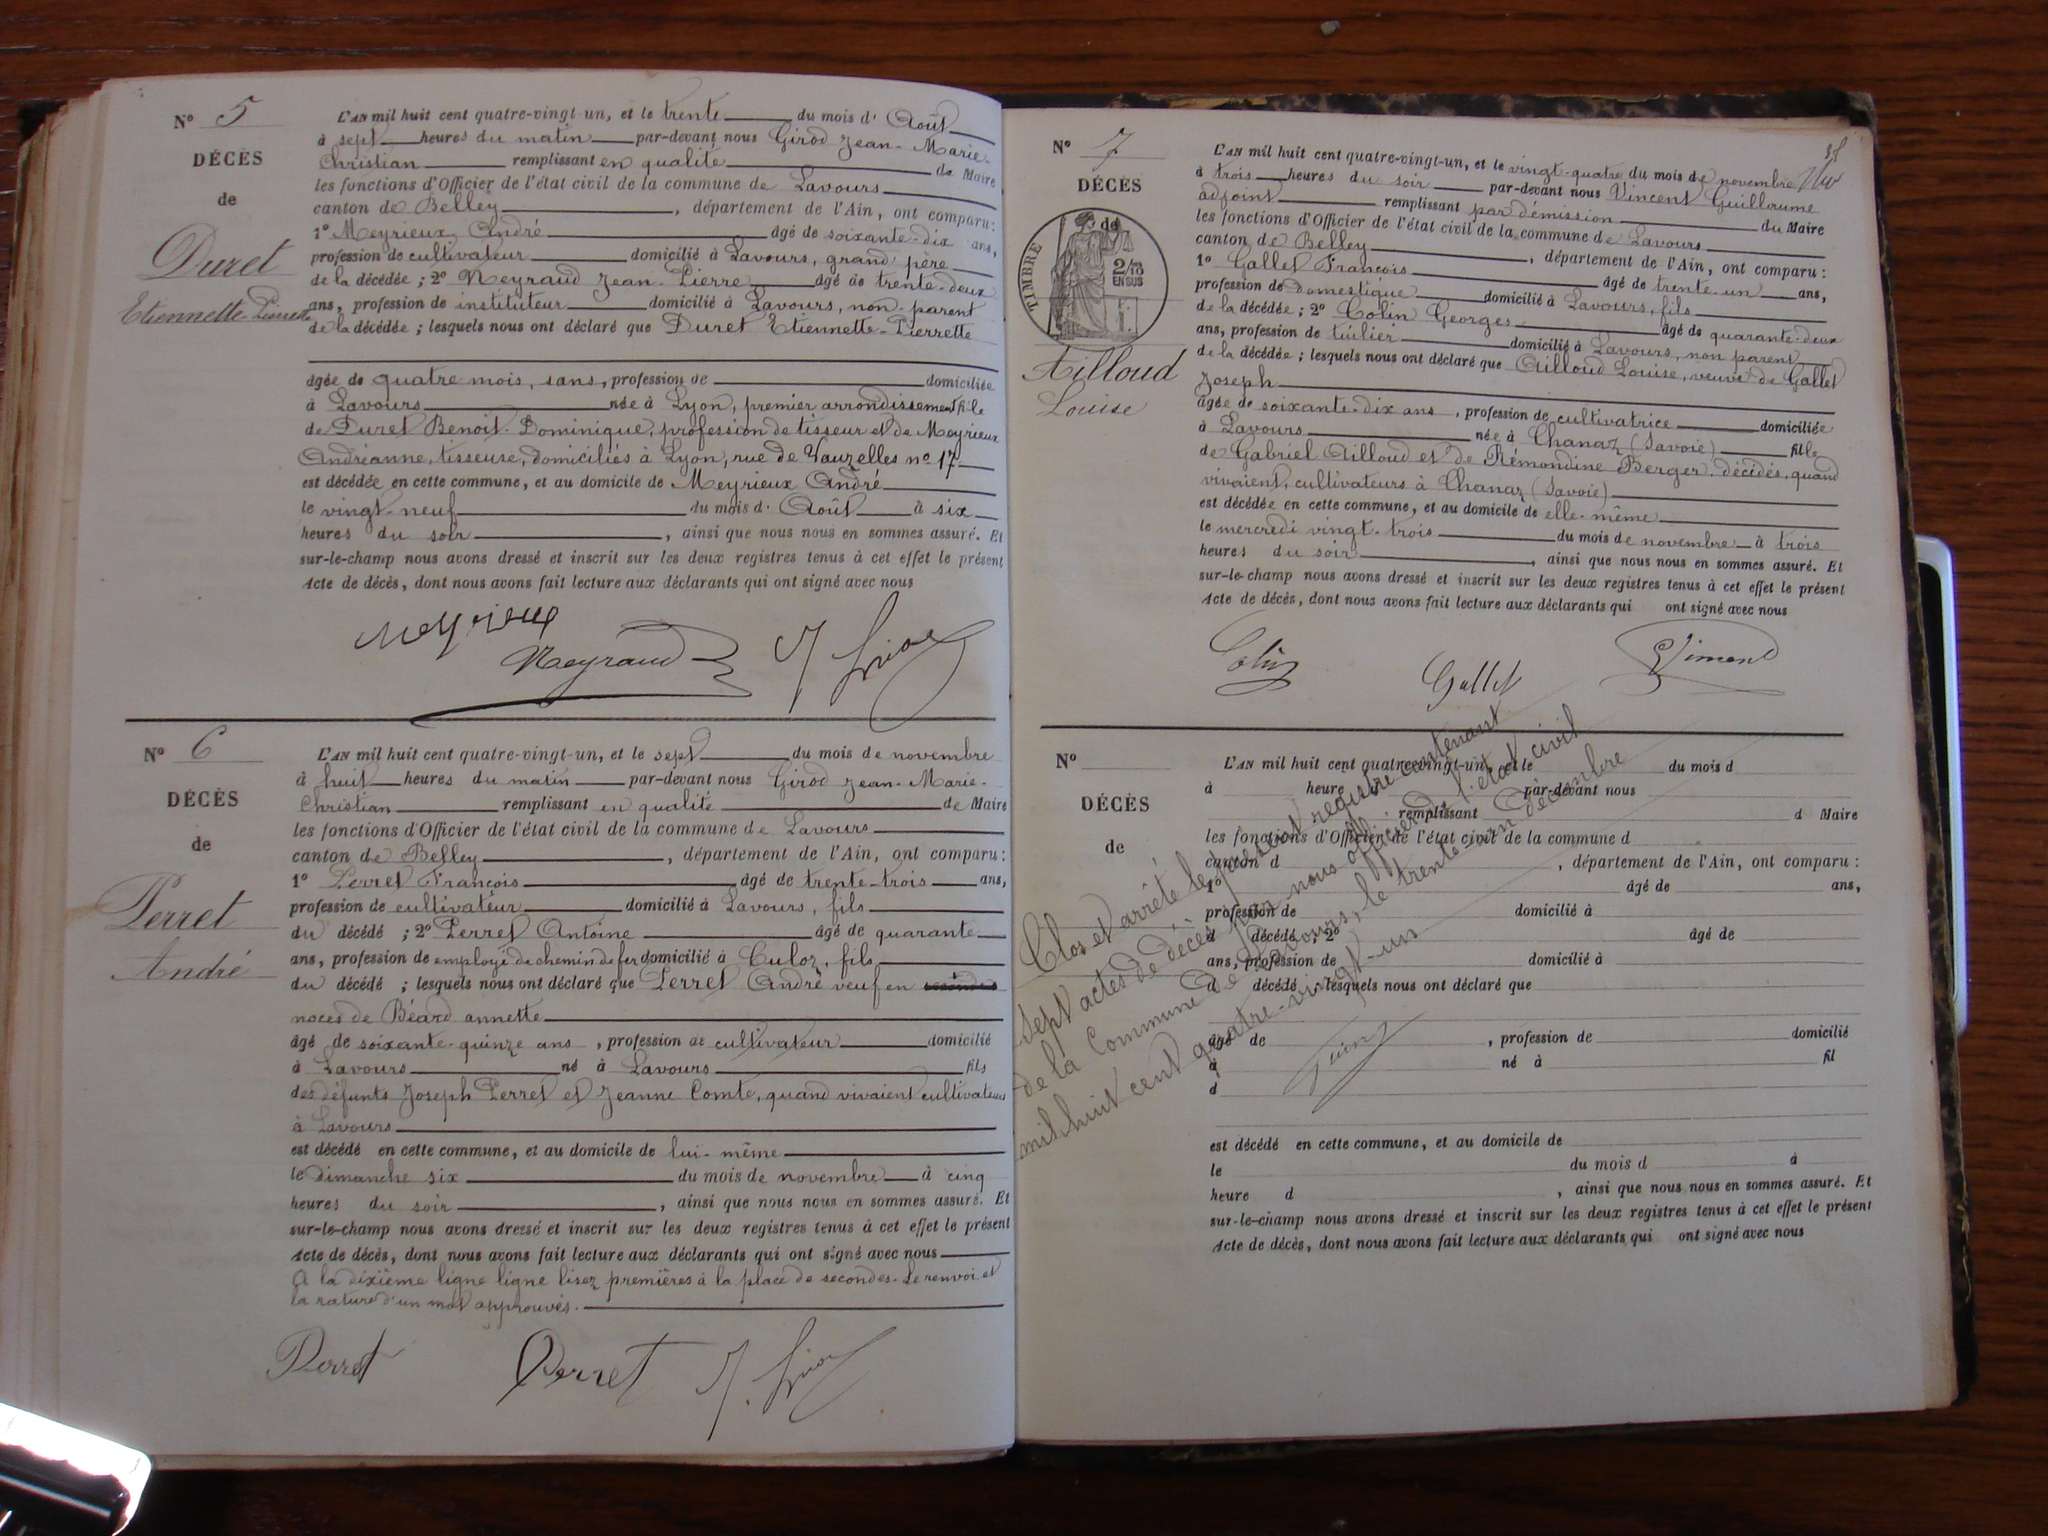 N° 5
DÉCÈS
de
Duret
Etiennette-Pierrette
L'AN mil huit cent quatre-vingt-un, et le trente du mois d' Août
à sept heures du matin par-devant nous Girod Jean-Marie-
Christian remplissant en qualité de Maire
les fonctions d'Officier de l'état civil de la commune de Lavours
canton de Belley, département de l'Ain, ont comparu:
1° Meyrieux André âgé de soixante-dix ans,
profession de cultivateur domicilié à Lavours, grand père
de la décédée ; 2° Neyraud Jean-Pierre âgé de trente-deux
ans, profession de instituteur domicilié à Lavours, non parent
de la décédée ; lesquels nous ont déclaré que Duret Etiennette-Pierrette
âgée de quatre mois, sans, profession de domiciliée
à Lavours née à Lyon, premier arrondissement fille
de Duret Benoit-Dominique, profession de tisseur et de Meyrieux
Andréanne, tisseuse, domiciliés à Lyon, rue de Vauzelles n° 17
est décédée en cette commune, et au domicile de Meyrieux André
le vingt-neuf du mois d' Août à six
heures du soir, ainsi que nous nous en sommes assuré. Et
sur-le-champ nous avons dressé et inscrit sur les deux registres tenus à cet effet le présent
Acte de décès, dont nous avons fait lecture aux déclarants qui ont signé avec nous
Meyrieux
Neyraud
N° 6
DÉCÈS
de
Perret
André
L'AN mil huit cent quatre-vingt-un, et le sept du mois de novembre
à huit heures du matin par-devant nous Girod Jean-Marie-
Christian remplissant en qualité de Maire
les fonctions d'Officier de l'état civil de la commune de Lavours
canton de Belley, département de l'Ain, ont comparu:
1° Perret François âgé de trente-trois ans,
profession de cultivateur domicilié à Lavours, fils
du décédé ; 2° Perret Antoine âgé de quarante
ans, profession de employé de chemin de fer domicilié à Culoz, fils
du décédé ; lesquels nous ont déclaré que Perret André veuf en
noces de Béard annette
âgé de soixante-quinze ans, profession de cultivateur domicilié
à Lavours né à Lavours fils
des défunts Joseph Perret et Jeanne Comte, quand vivaient cultivateurs
à Lavours
est décédé en cette commune, et au domicile de lui-même
le dimanche six du mois de novembre à cinq
heures du soir, ainsi que nous nous en sommes assuré. Et
sur-le-champ nous avons dressé et inscrit sur les deux registres tenus à cet effet le présent
Acte de décès, dont nous avons fait lecture aux déclarants qui ont signé avec nous
A la dixième ligne ligne lisez premières à la place de secondes. Le renvoi et
la rature d'un mot approuvés.
Perret
Perret
N° 7
DÉCÈS
de
TIMBRE
2/10
EN SUS
Ailloud
Louise
L'AN mil huit cent quatre-vingt-un, et le vingt-quatre du mois de novembre
à trois heures du soir par-devant nous Vincent Guillaume
adjoint remplissant par démission du Maire
les fonctions d'Officier de l'état civil de la commune de Lavours
canton de Belley, département de l'Ain, ont comparu :
1° Gallet François âgé de trente-un ans,
profession de domestique domicilié à Lavours, fils
de la décédée ; 2° Colin Georges âgé de quarante-deux
ans, profession de tuilier domicilié à Lavours, non parent
de la décédée ; lesquels nous ont déclaré que Ailloud Louise, veuve de Gallet
Joseph
âgée de soixante-dix ans, profession de cultivatrice domiciliée
à Lavours née à Chanaz (Savoie) fille
de Gabriel Ailloud et de Rémondine Berger, décédés, quand
vivaient, cultivateurs à Chanaz (Savoie)
est décédée en cette commune, et au domicile de elle-même
le mercredi vingt-trois du mois de novembre à trois
heures du soir, ainsi que nous nous en sommes assuré. Et
sur-le-champ nous avons dressé et inscrit sur les deux registres tenus à cet effet le présent
Acte de décès, dont nous avons fait lecture aux déclarants qui ont signé avec nous
Colin
Gallet
N°
DÉCÈS
de
L'AN mil huit cent quatre-vingt-un, et le du mois d
à heure par-devant nous
remplissant d Maire
les fonctions d'Officier de l'état civil de la commune d
canton d, département de l'Ain, ont comparu :
1° âgé de ans,
profession de domicilié à
d décédé ; 2° âgé de
ans, profession de domicilié à
d décédé ; lesquels nous ont déclaré que
âgé de, profession de domicilié
à né à fil
d
est décédé en cette commune, et au domicile de
le du mois d à
heure d, ainsi que nous nous en sommes assuré. Et
sur-le-champ nous avons dressé et inscrit sur les deux registres tenus à cet effet le présent
Acte de décès, dont nous avons fait lecture aux déclarants qui ont signé avec nous
Clos et arrêté le présent registre contenant
sept actes de décès par nous officier de l'état civil
de la Commune de Lavours, le trente-un décembre
mil huit cent quatre-vingt-un